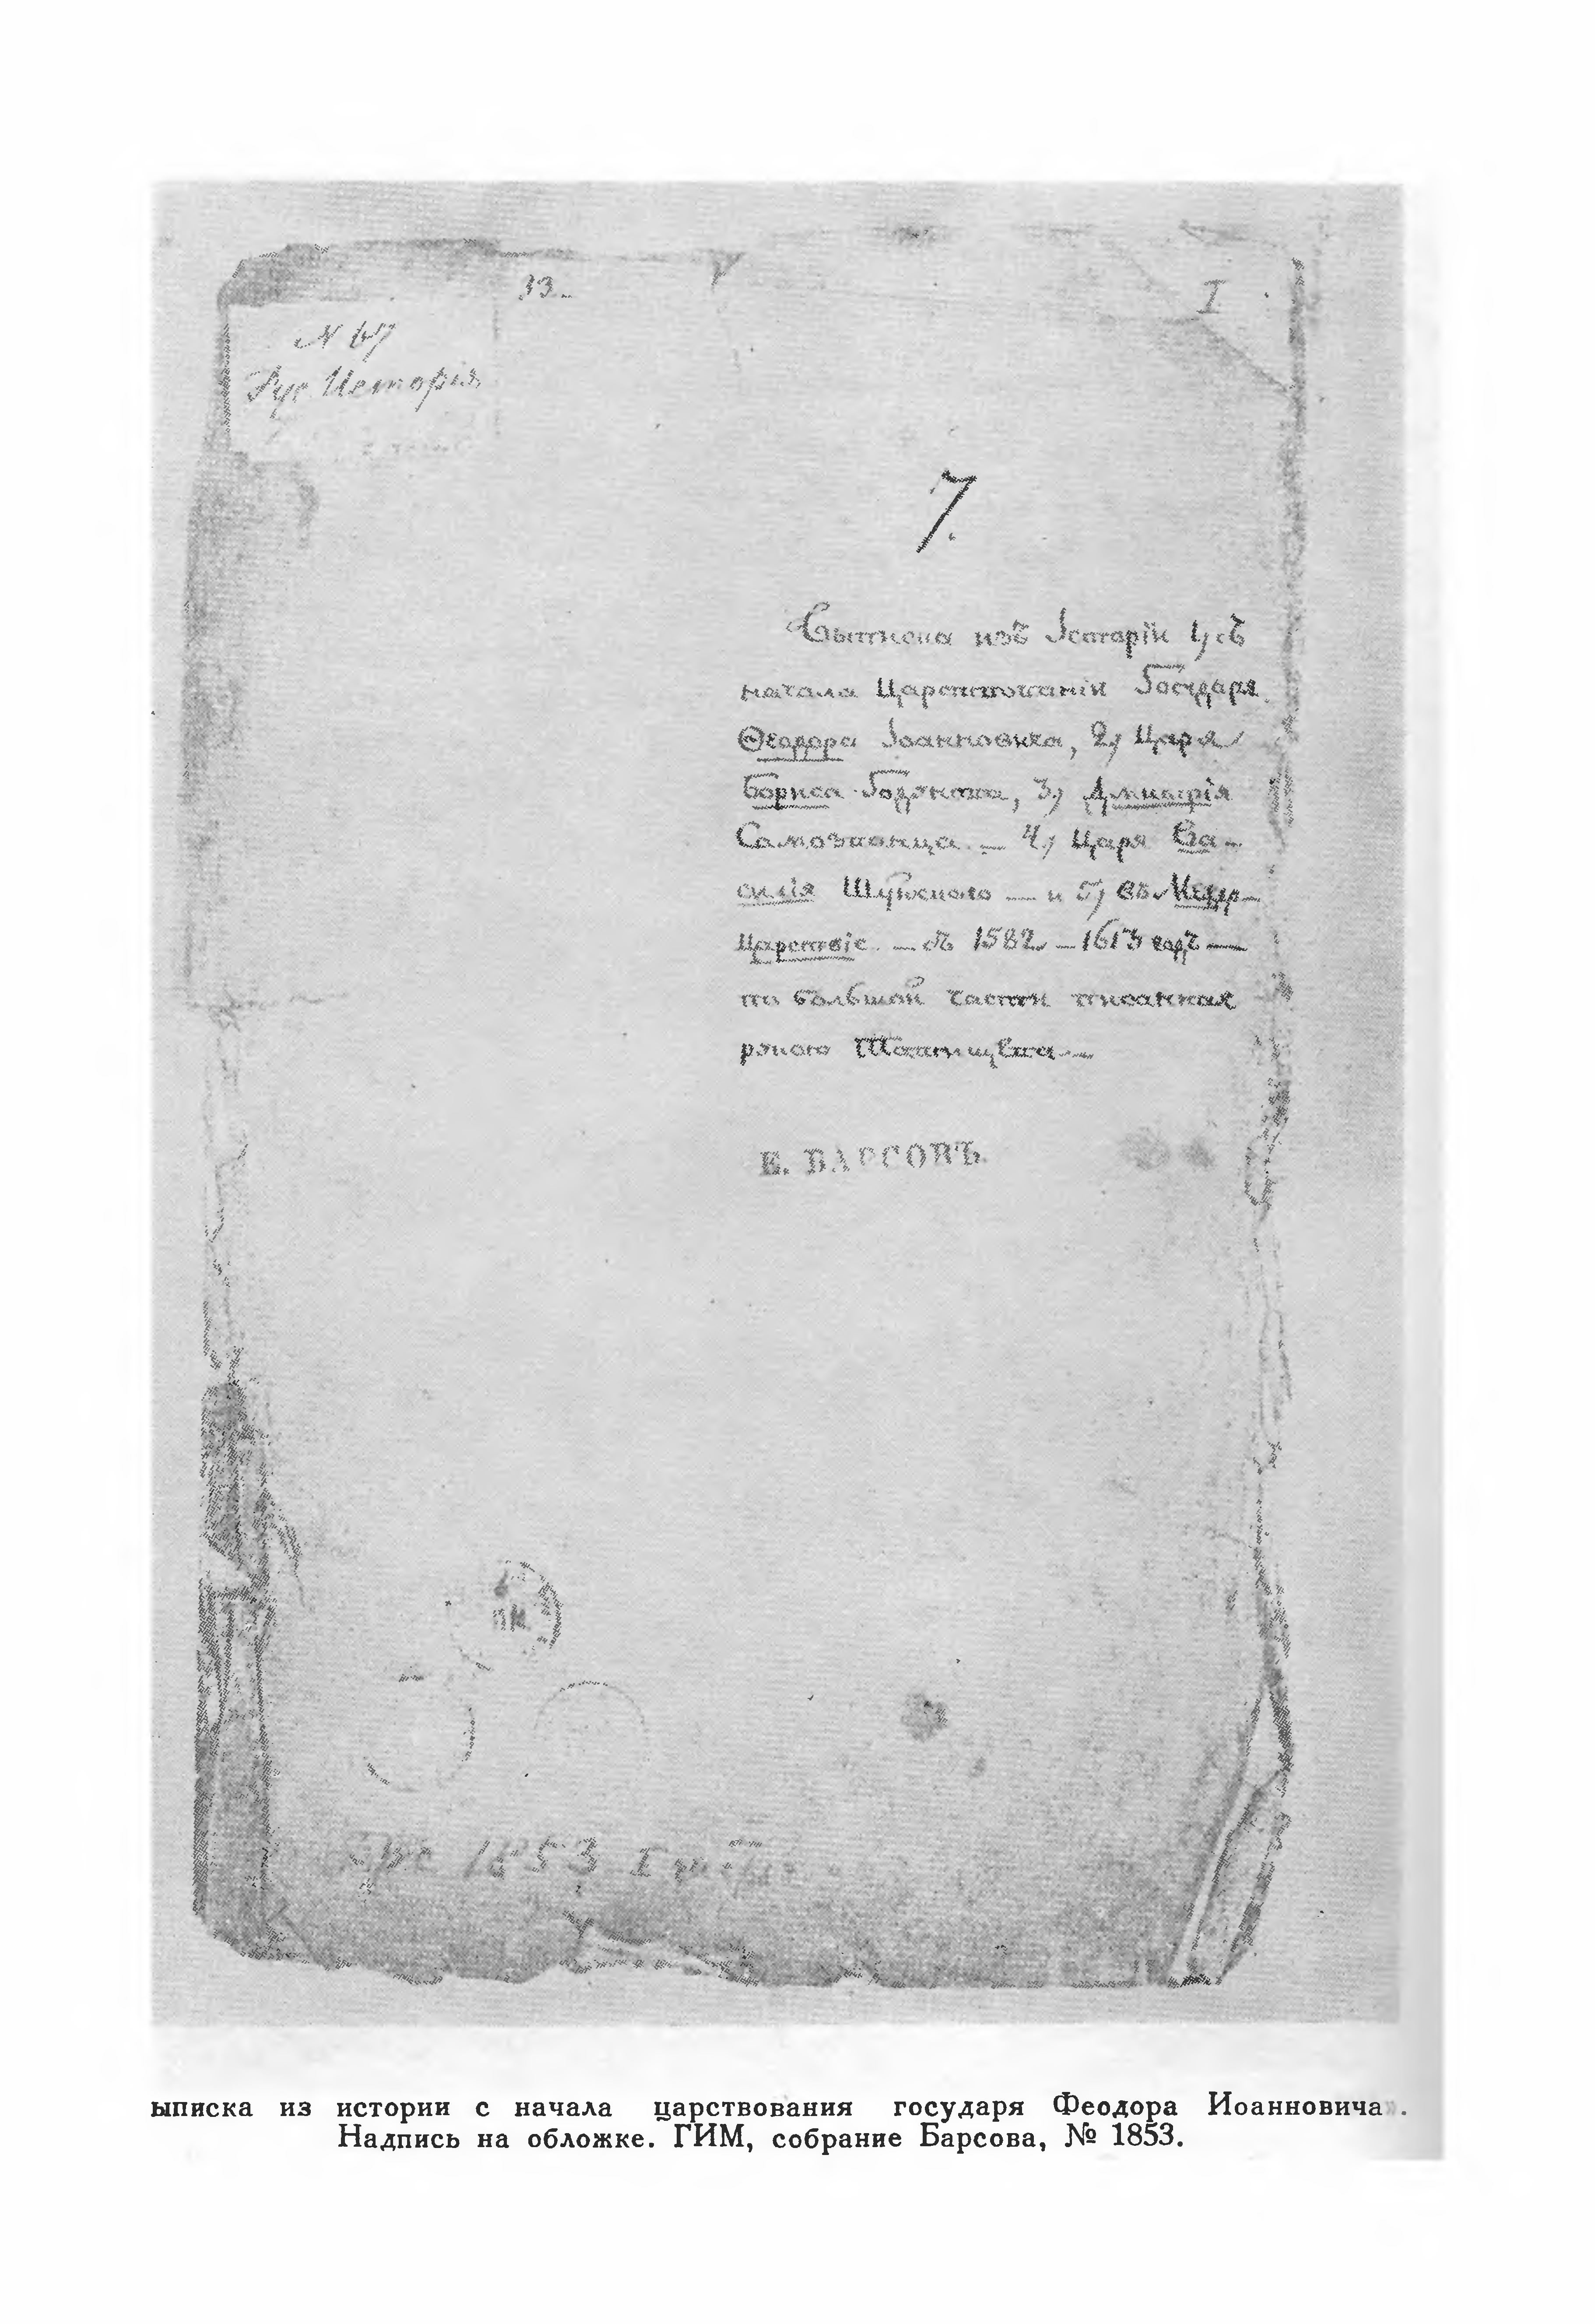 13.
I
N 67
Рус. Исторія
7.
Выписка изъ Iсторіи 1, съ
начала Царствованіи Государя
Ѳеодора Iоанновича, 2, Царя
Бориса Годунова, 3, Дмитрія
Самозванца. — 4, Царя Ва-
силія Шуйскаго — и 5, въ Между-
Царствіе. — съ 1582 — 1613 годъ —
по большой части писанная
рукою Татищева —
Е. БАРСОВЪ.
1853 I
ыписка из истории с начала царствования государя Феодора Иоанновича».
Надпись на обложке. ГИМ, собрание Барсова, № 1853.